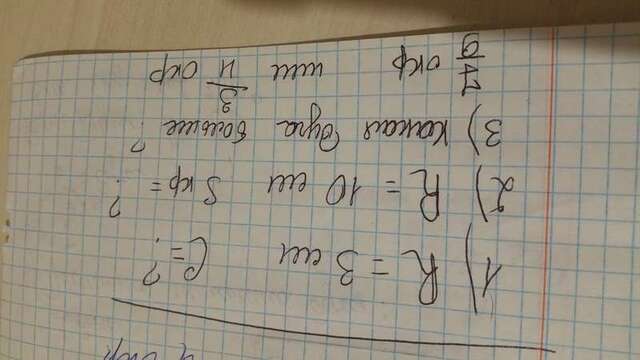 1) R = 3 см C = ?
2) R = 10 см S кр = ?
3) Какая дуга больше ?
7/9 окр или 3/4 окр